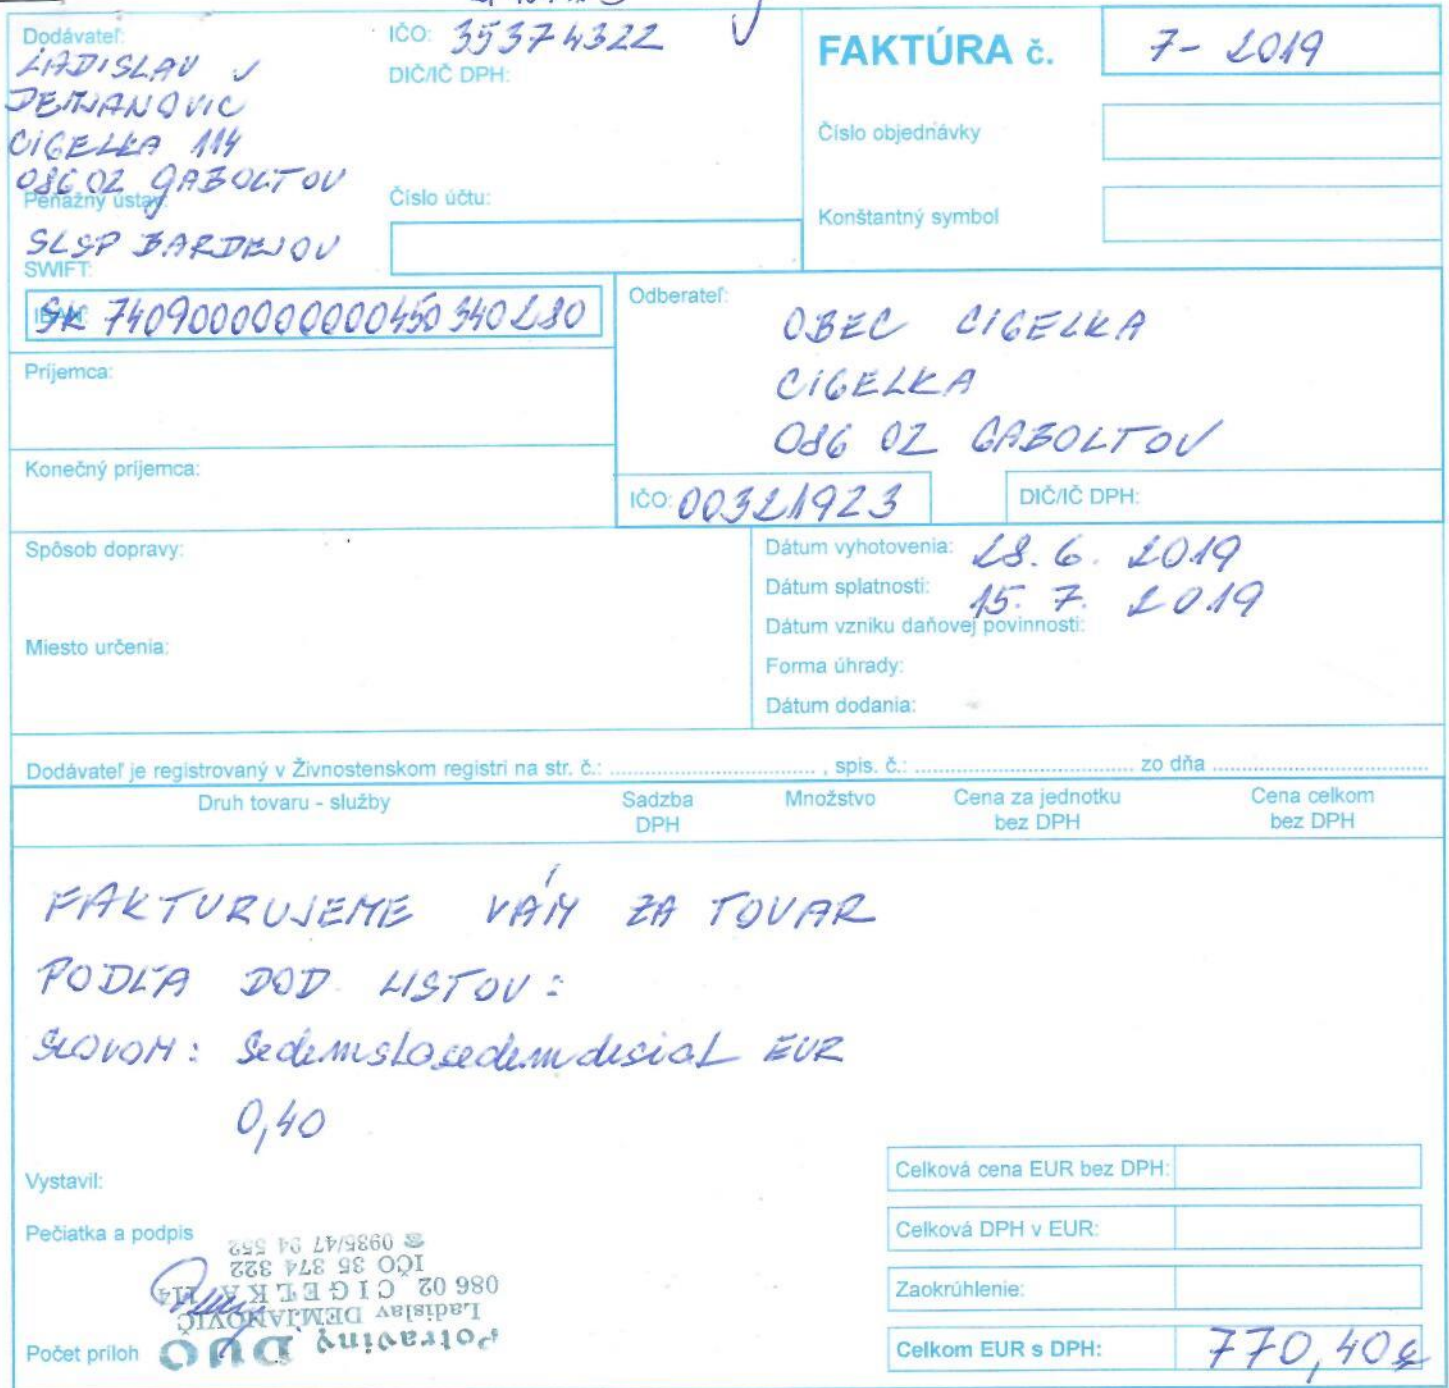 Dodávateľ:
LADISLAV
DEMJANOVIC
CIGELKA 114
086 02 GABOLTOV
IČO: 35374322
DIČ/IČ DPH:
FAKTÚRA č. 7- 2019
Číslo objednávky
Konštantný symbol
Peňažný ústav:
SLSP BARDEJOV
Číslo účtu:
SWIFT:
IBAN: SK 7409000000000450340280
Príjemca:
Konečný príjemca:
Odberateľ:
OBEC CIGELKA
CIGELKA
086 02 GABOLTOV
IČO: 00321923
DIČ/IČ DPH:
Spôsob dopravy:
Miesto určenia:
Dátum vyhotovenia: 28. 6. 2019
Dátum splatnosti: 15. 7. 2019
Dátum vzniku daňovej povinnosti:
Forma úhrady:
Dátum dodania:
Dodávateľ je registrovaný v Živnostenskom registri na str. č.: ............ , spis. č.: ............ zo dňa ............
Druh tovaru - služby
Sadzba DPH
Množstvo
Cena za jednotku bez DPH
Cena celkom bez DPH
FAKTURUJEME VÁM ZA TOVAR
PODĽA DOD. LISTOV:
SLOVOM: Sedemstosedemdesiat EUR
0,40
Vystavil:
Pečiatka a podpis
Potraviny DUO
Ladislav DEMJANOVIČ
086 02 CIGELKA 114
IČO 35 374 322
☎ 0935/47 94 552
Počet príloh
Celková cena EUR bez DPH:
Celková DPH v EUR:
Zaokrúhlenie:
Celkom EUR s DPH: 770,40 €